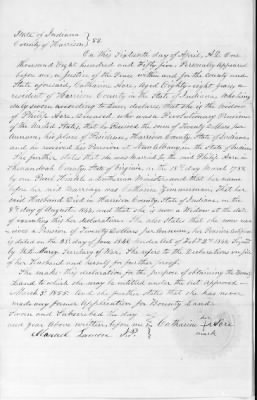 State of Indiana
County of Harrison } SS.
On this Sixteenth day of April, A.D. One
thousand Eight hundred and Fifty five, Personally appeared
before me, a Justice of the Peace within and for the County and
State aforesaid, Catharine Hore, aged Eighty-eight years a
resident of Harrison County in the State of Indiana, who being
duly sworn according to Law, declares, that she is the Widow
of Philip Hore, Deceased, who was a Revolutionary Pensioner
of the United States, that he Received the sum of Twenty Dollars per
Annum, his place of Residence, Harrison County, State of Indiana
and he received his Pension at New Albany, in the State of Indiana.
She further states that she was Married to the said Philip Hore in
Shenandoah County State of Virginia, on the 18th day of March 1788
by one Paul Henkel a Lutheran Minister, and that her name
before her said Marriage was Catharine Zimmerman, That her
said Husband Died in Harrison County, State of Indiana, on the
day of August, and that she is now a Widow at the date
of executing this her declaration. She also states that she now re-
ceives a Pension of Twenty Dollars per Annum, her Pension Certificate
is dated on the day of June 1848 under Act of Feby 2nd 1848 Signed
by Secretary of War. She refers to the Declarations on file
of her Husband and herself for further proof.
She makes this declaration for the purpose of obtaining the Bounty
Land to which she may be entitled under the act approved
March 3d 1855. And she further states that she has never
made any former Application for Bounty Land
Sworn and Subscribed the day
and year above written before me } Catharine her Hore
J.P. mark